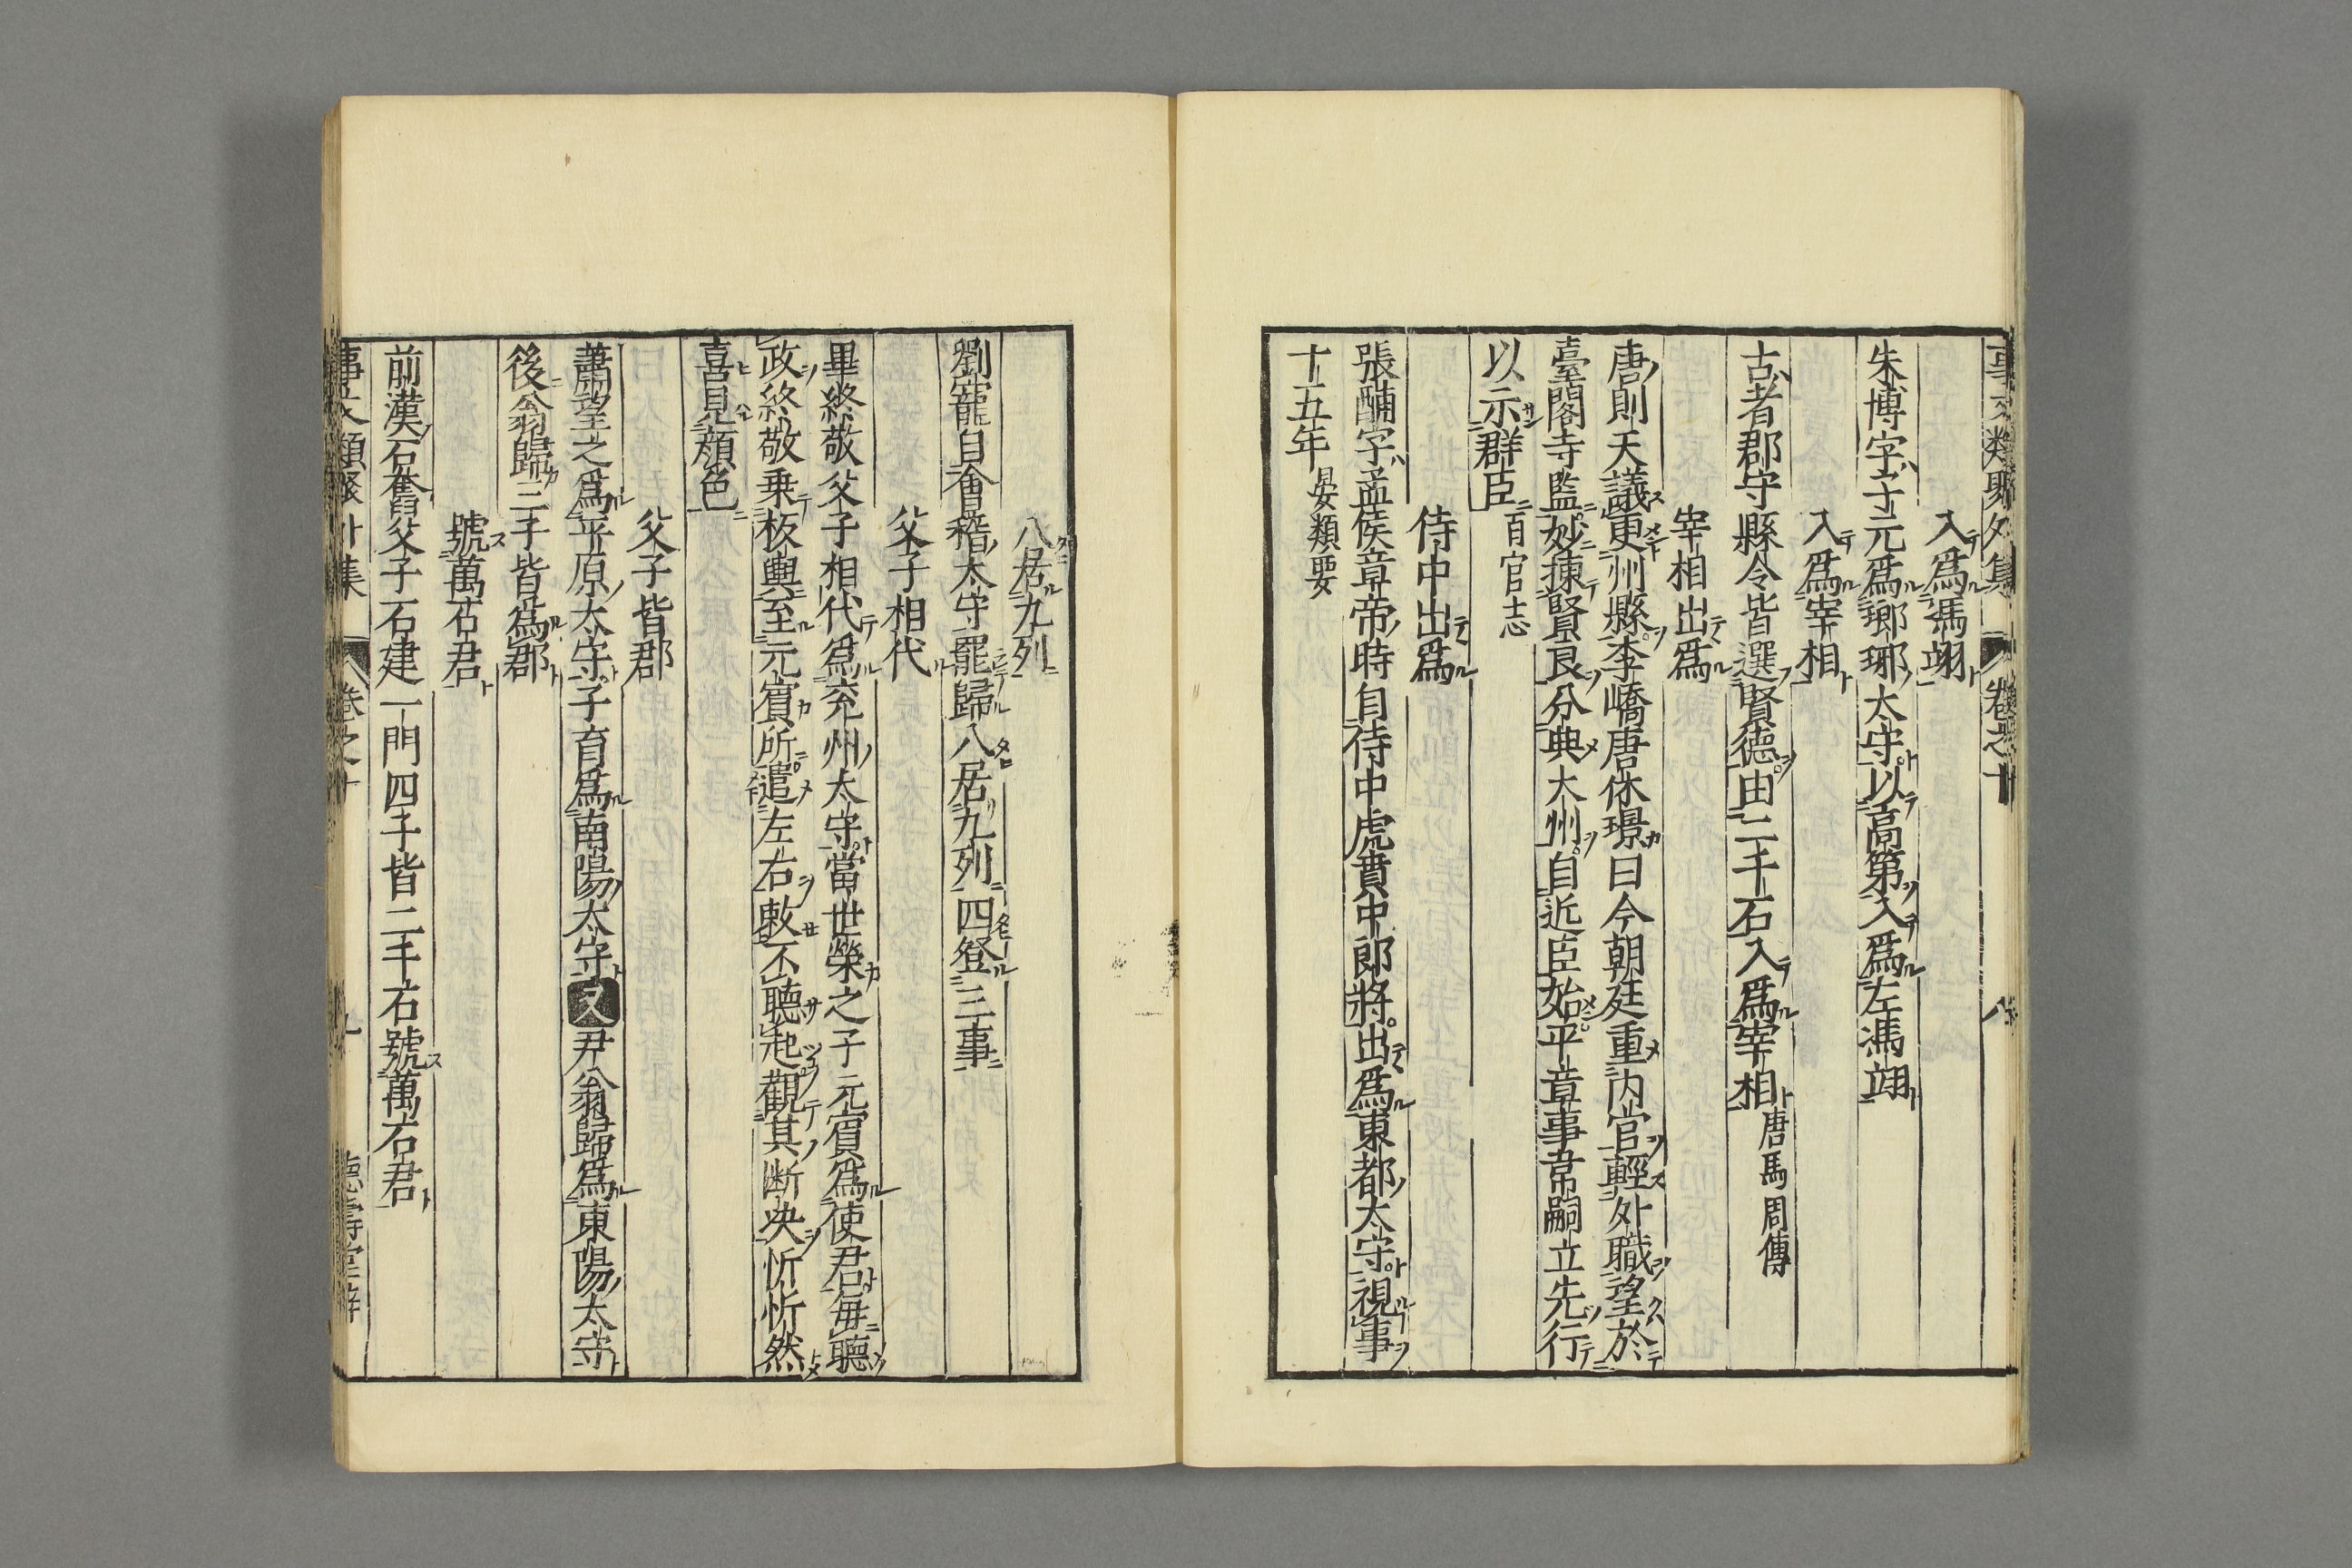 事文類聚外集 卷之十 八
入爲馮翊
朱博字子元爲瑯琊太守以高第入爲左馮翊
入爲宰相
古者郡守縣令皆選賢德由二千石入爲宰相唐馬周傳
宰相出爲
唐則天議更州縣李嶠唐休璟曰今朝廷重内官輕外職望於
臺閣寺監妙揀賢良分典大州自近臣始平章事韋嗣立先行
以示群臣百官志
侍中出爲
張酺字孟侯章帝時自侍中虎賁中郎將出爲東都太守視事
十五年晏類要
八居九列
劉寵自會稽太守罷歸八居九列四登三事
父子相代
畢終敬父子相代爲兖州太守當世榮之子元賓爲使君每聽
政終敬乗板輿至元賓所遣左右敕不聽起觀其断决忻忻然
喜見顔色
父子皆郡
蕭望之爲平原太守子育爲南陽太守又尹翁歸爲東陽太守
後翁歸三子皆爲郡
號萬石君
前漢石奮父子石建一門四子皆二千石號萬石君
事文類聚外集 卷之十 九 德壽堂梓